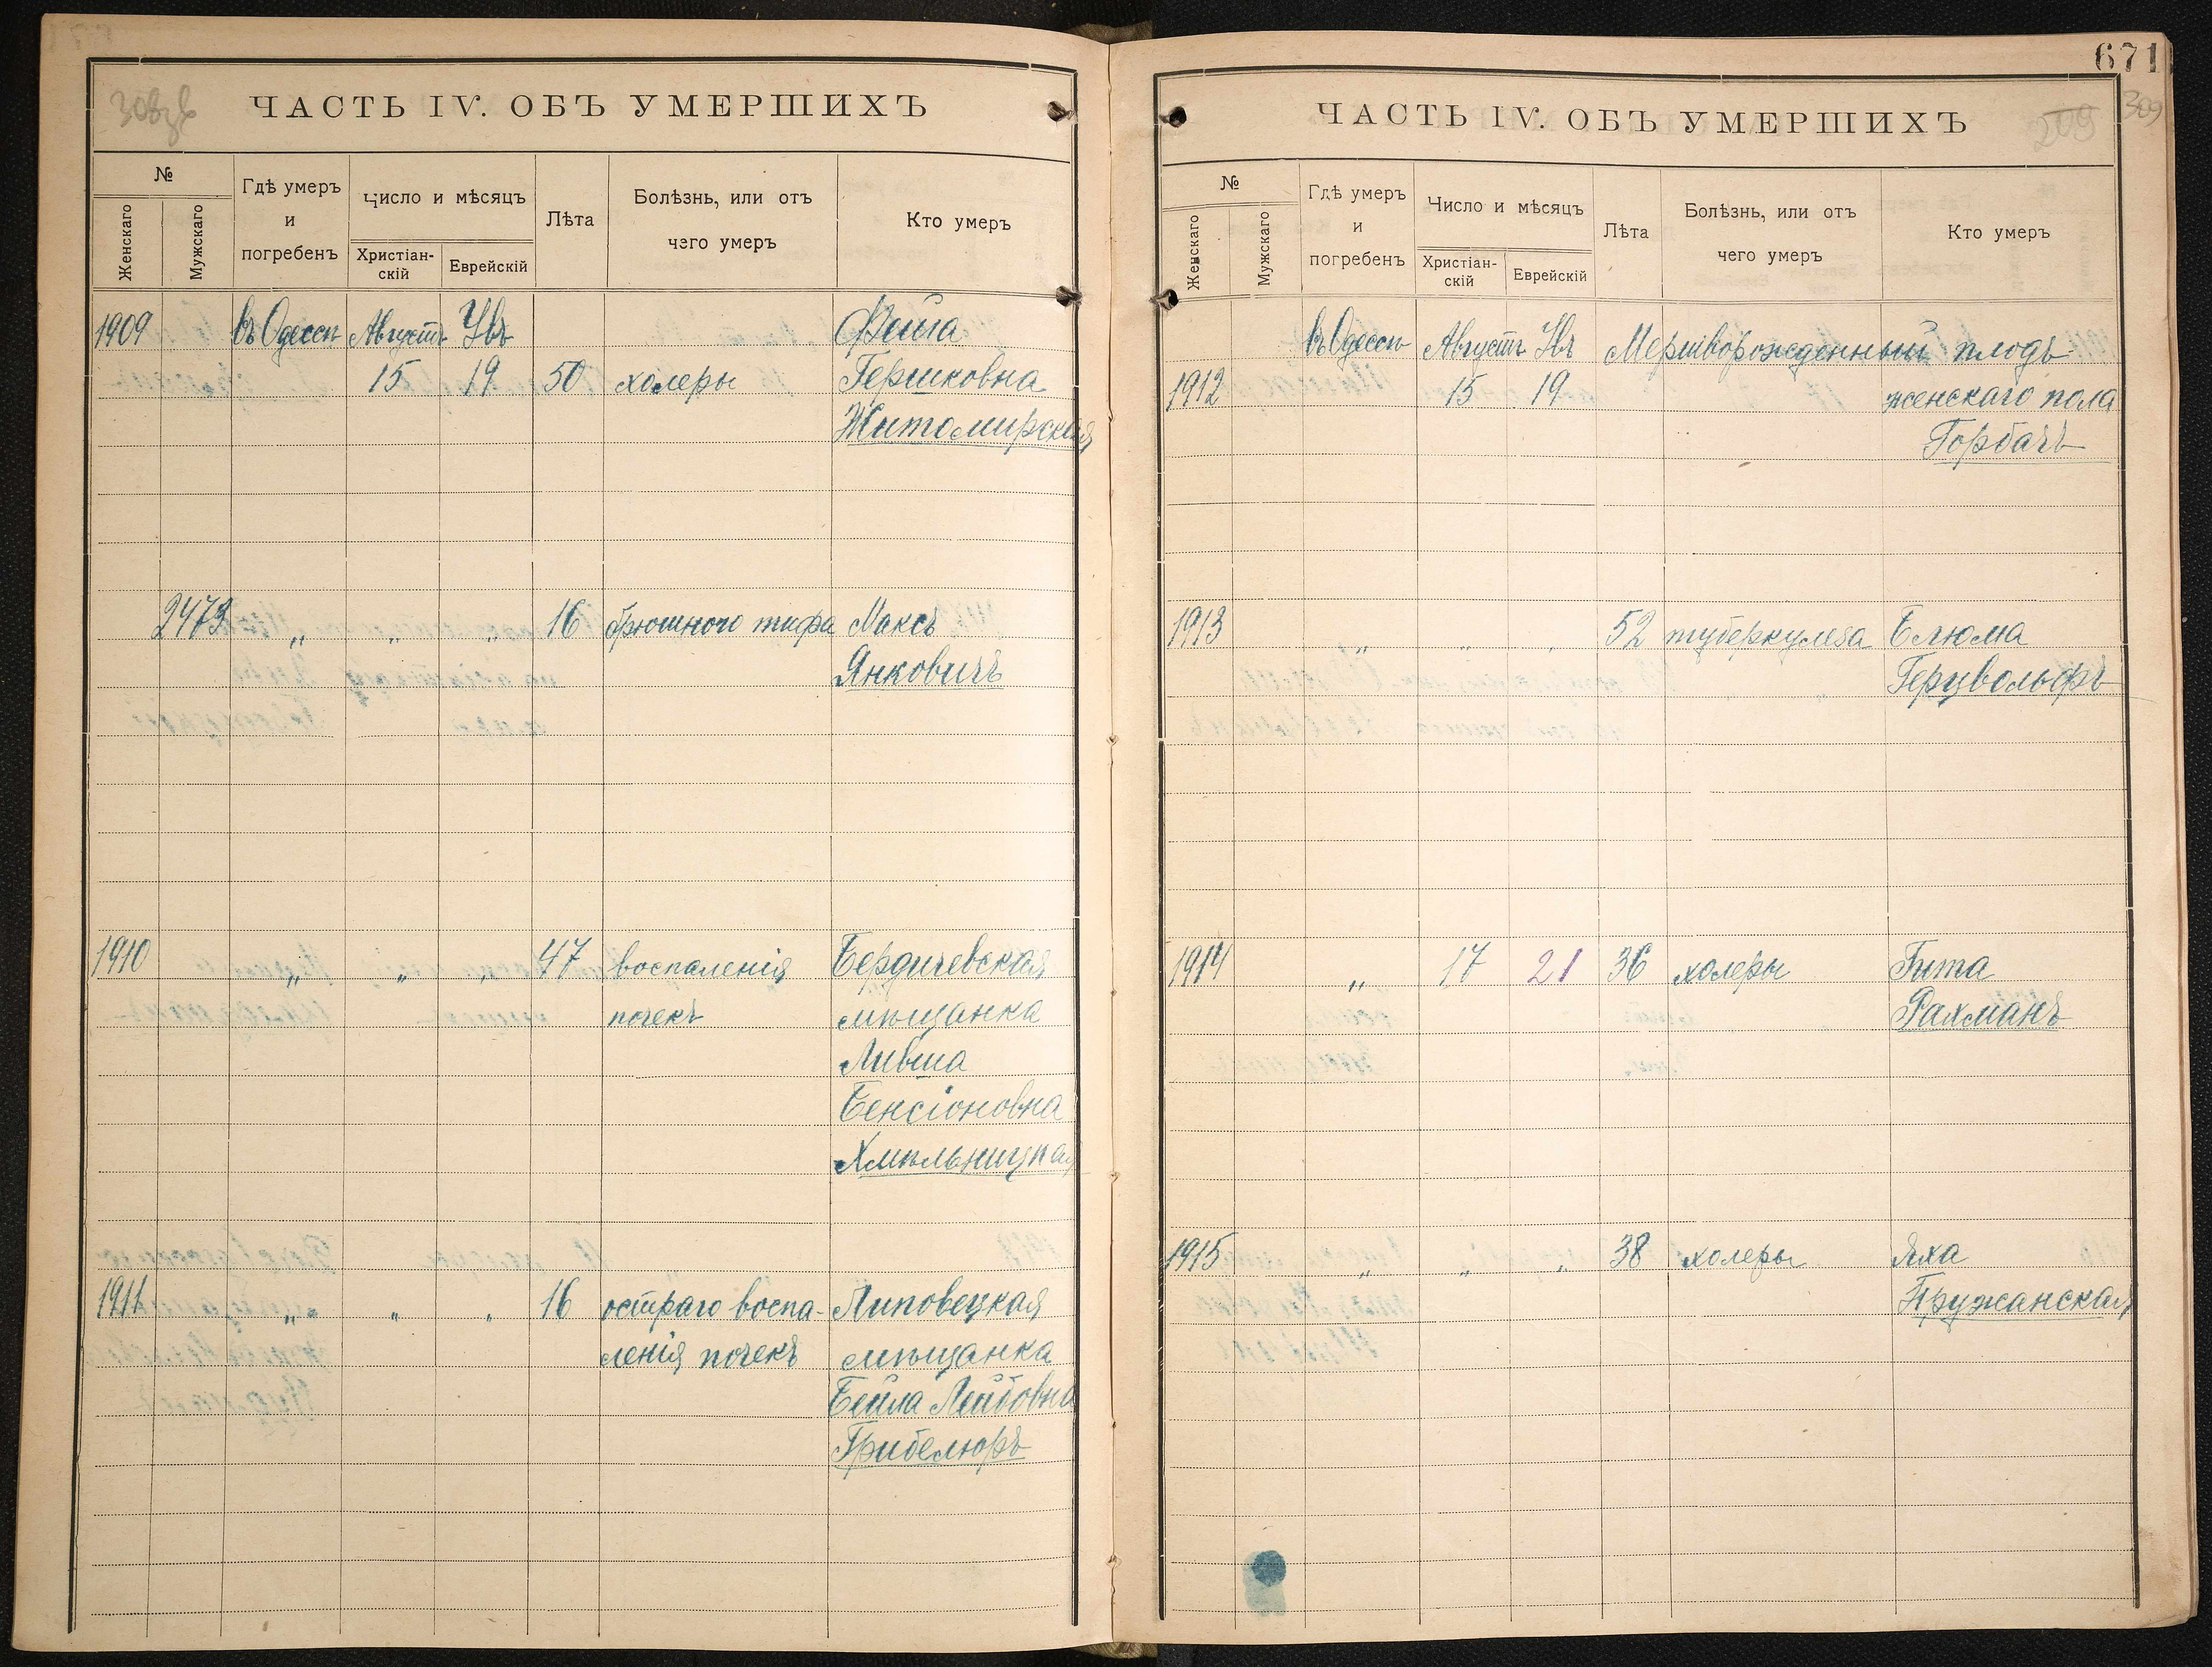 ЧАСТЬ IV. ОБЪ УМЕРШИХЪ
№
Женскаго
Мужскаго
Гдѣ умеръ
и
погребенъ
Число и мѣсяцъ
Христіан-
скій
Еврейскій
Лѣта
Болѣзнь, или отъ
чего умеръ
Кто умеръ
1909 въ Одессѣ Августъ Увъ Фейга
15 19 50 холеры Гершковна
Житомирская
2473 „ „ „ 16 брюшного тифа Максъ
Янковичъ
1910 „ „ „ 47 воспаленія Бердичевская
почекъ мѣщанка
Ливша
Бенсіоновна
Хмѣльницкая
1911 „ „ „ 16 остраго воспа- Липовецкая
ленія почекъ мѣщанка
Бейла Лейбовна
Грибелюръ
671
309
ЧАСТЬ IV. ОБЪ УМЕРШИХЪ
209
№
Женскаго
Мужскаго
Гдѣ умеръ
и
погребенъ
Число и мѣсяцъ
Христіан-
скій
Еврейскій
Лѣта
Болѣзнь, или отъ
чего умеръ
Кто умеръ
въ Одессѣ Августъ Увъ Мертворожденный плодъ
1912 15 19 женскаго пола
Горбачъ
1913 „ „ „ 52 туберкулеза Блюма
Герцвольфъ
1914 „ 17 21 36 холеры Гита
Рахманъ
1915 „ „ „ 38 холеры Яха
Пружанская